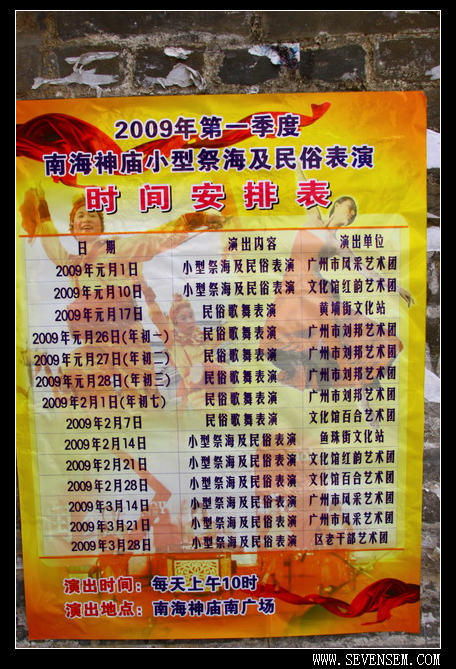 2009年第一季度
南海神庙小型祭海及民俗表演
时间安排表
日 期 演出内容 演出单位
2009年元月1日 小型祭海及民俗表演 广州市风采艺术团
2009年元月10日 小型祭海及民俗表演 文化馆红韵艺术团
2009年元月17日 民俗歌舞表演 黄埔街文化站
2009年元月26日(年初一) 民俗歌舞表演 广州市刘邦艺术团
2009年元月27日(年初二) 民俗歌舞表演 广州市刘邦艺术团
2009年元月28日(年初三) 民俗歌舞表演 广州市刘邦艺术团
2009年2月1日(年初七) 民俗歌舞表演 广州市刘邦艺术团
2009年2月7日 民俗歌舞表演 文化馆百合艺术团
2009年2月14日 小型祭海及民俗表演 鱼珠街文化站
2009年2月21日 小型祭海及民俗表演 文化馆红韵艺术团
2009年2月28日 小型祭海及民俗表演 文化馆百合艺术团
2009年3月14日 小型祭海及民俗表演 广州市风采艺术团
2009年3月21日 小型祭海及民俗表演 广州市风采艺术团
2009年3月28日 小型祭海及民俗表演 区老干部艺术团
演出时间：每天上午10时
演出地点：南海神庙南广场
WWW.SEVENSEM.COM